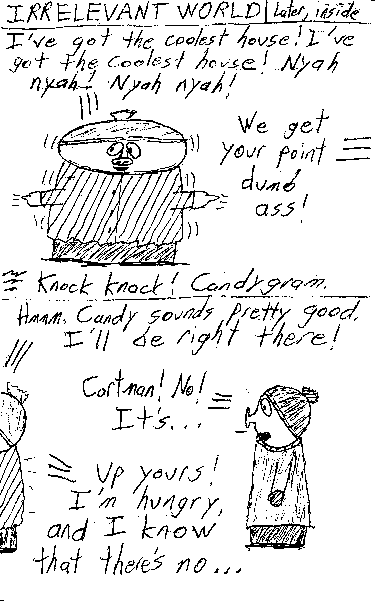 IRRELEVANT WORLD Later, inside
I've got the coolest house! I've
got the coolest house! Nyah
nyah! Nyah nyah!
We get
your point
dumb
ass!
Knock knock! Candygram.
Hmmm. Candy sounds pretty good.
I'll be right there!
Cortman! No!
It's...
Up yours!
I'm hungry,
and I know
that there's no...